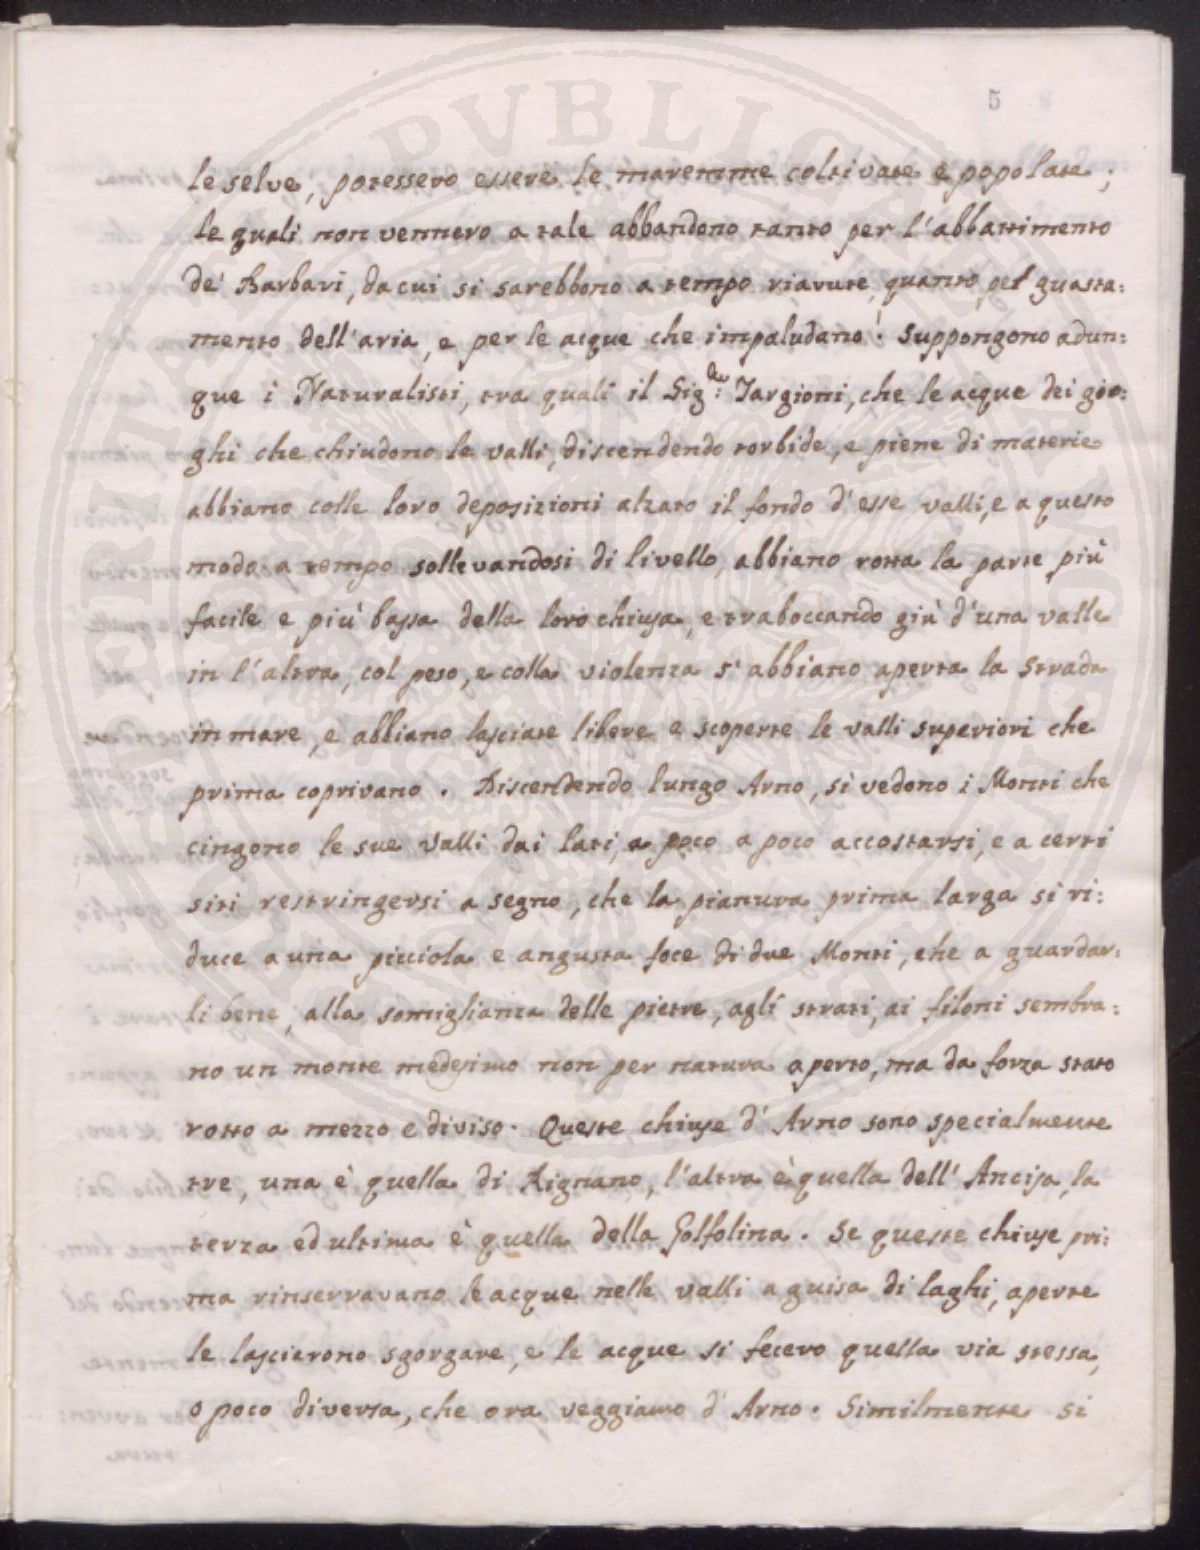 5
le selve, potessero essere le maremme coltivate e popolate;
le quali non vennero a tale abbandono tanto per l'abbattimento
de' Barbari, da cui si sarebbono a tempo riavute, quanto, pel guasta:
mento dell'aria, e per le acque che impaludano. Suppongono adun:
que i Naturalisti, tra quali il Sig.re Targioni, che le acque dei gio:
ghi che chiudono le valli, discendendo torbide, e piene di materie
abbiano colle loro deposizioni alzato il fondo d'esse valli, e a questo
modo a tempo sollevandosi di livello, abbiano rotta la parte più
facile e più bassa della loro chiusa, e traboccando giù d'una valle
in l'altra, col peso, e colla violenza s'abbiano aperta la strada
in mare, e abbiano lasciate libere e scoperte le valli superiori che
prima coprivano. Discendendo lungo Arno, si vedono i Monti che
cingono le sue valli dai lati, a poco a poco accostarsi, e a certi
siti restringersi a segno, che la pianura prima larga si ri:
duce a una picciola e angusta foce di due Monti, che a guardar:
li bene, alla somiglianza delle pietre, agli strati, ai filoni sembra:
no un monte medesimo non per natura aperto, ma da forza stato
rotto a mezzo e diviso. Queste chiuse d'Arno sono specialmente
tre, una è quella di Rignano, l'altra è quella dell'Ancisa, la
terza ed ultima è quella della Golfolina. Se queste chiuse pri:
ma rinserravano le acque nelle valli a guisa di laghi, aperte
le lasciarono sgorgare, e le acque si fecero quella via stessa,
o poco diversa, che ora veggiamo d'Arno. Similmente si